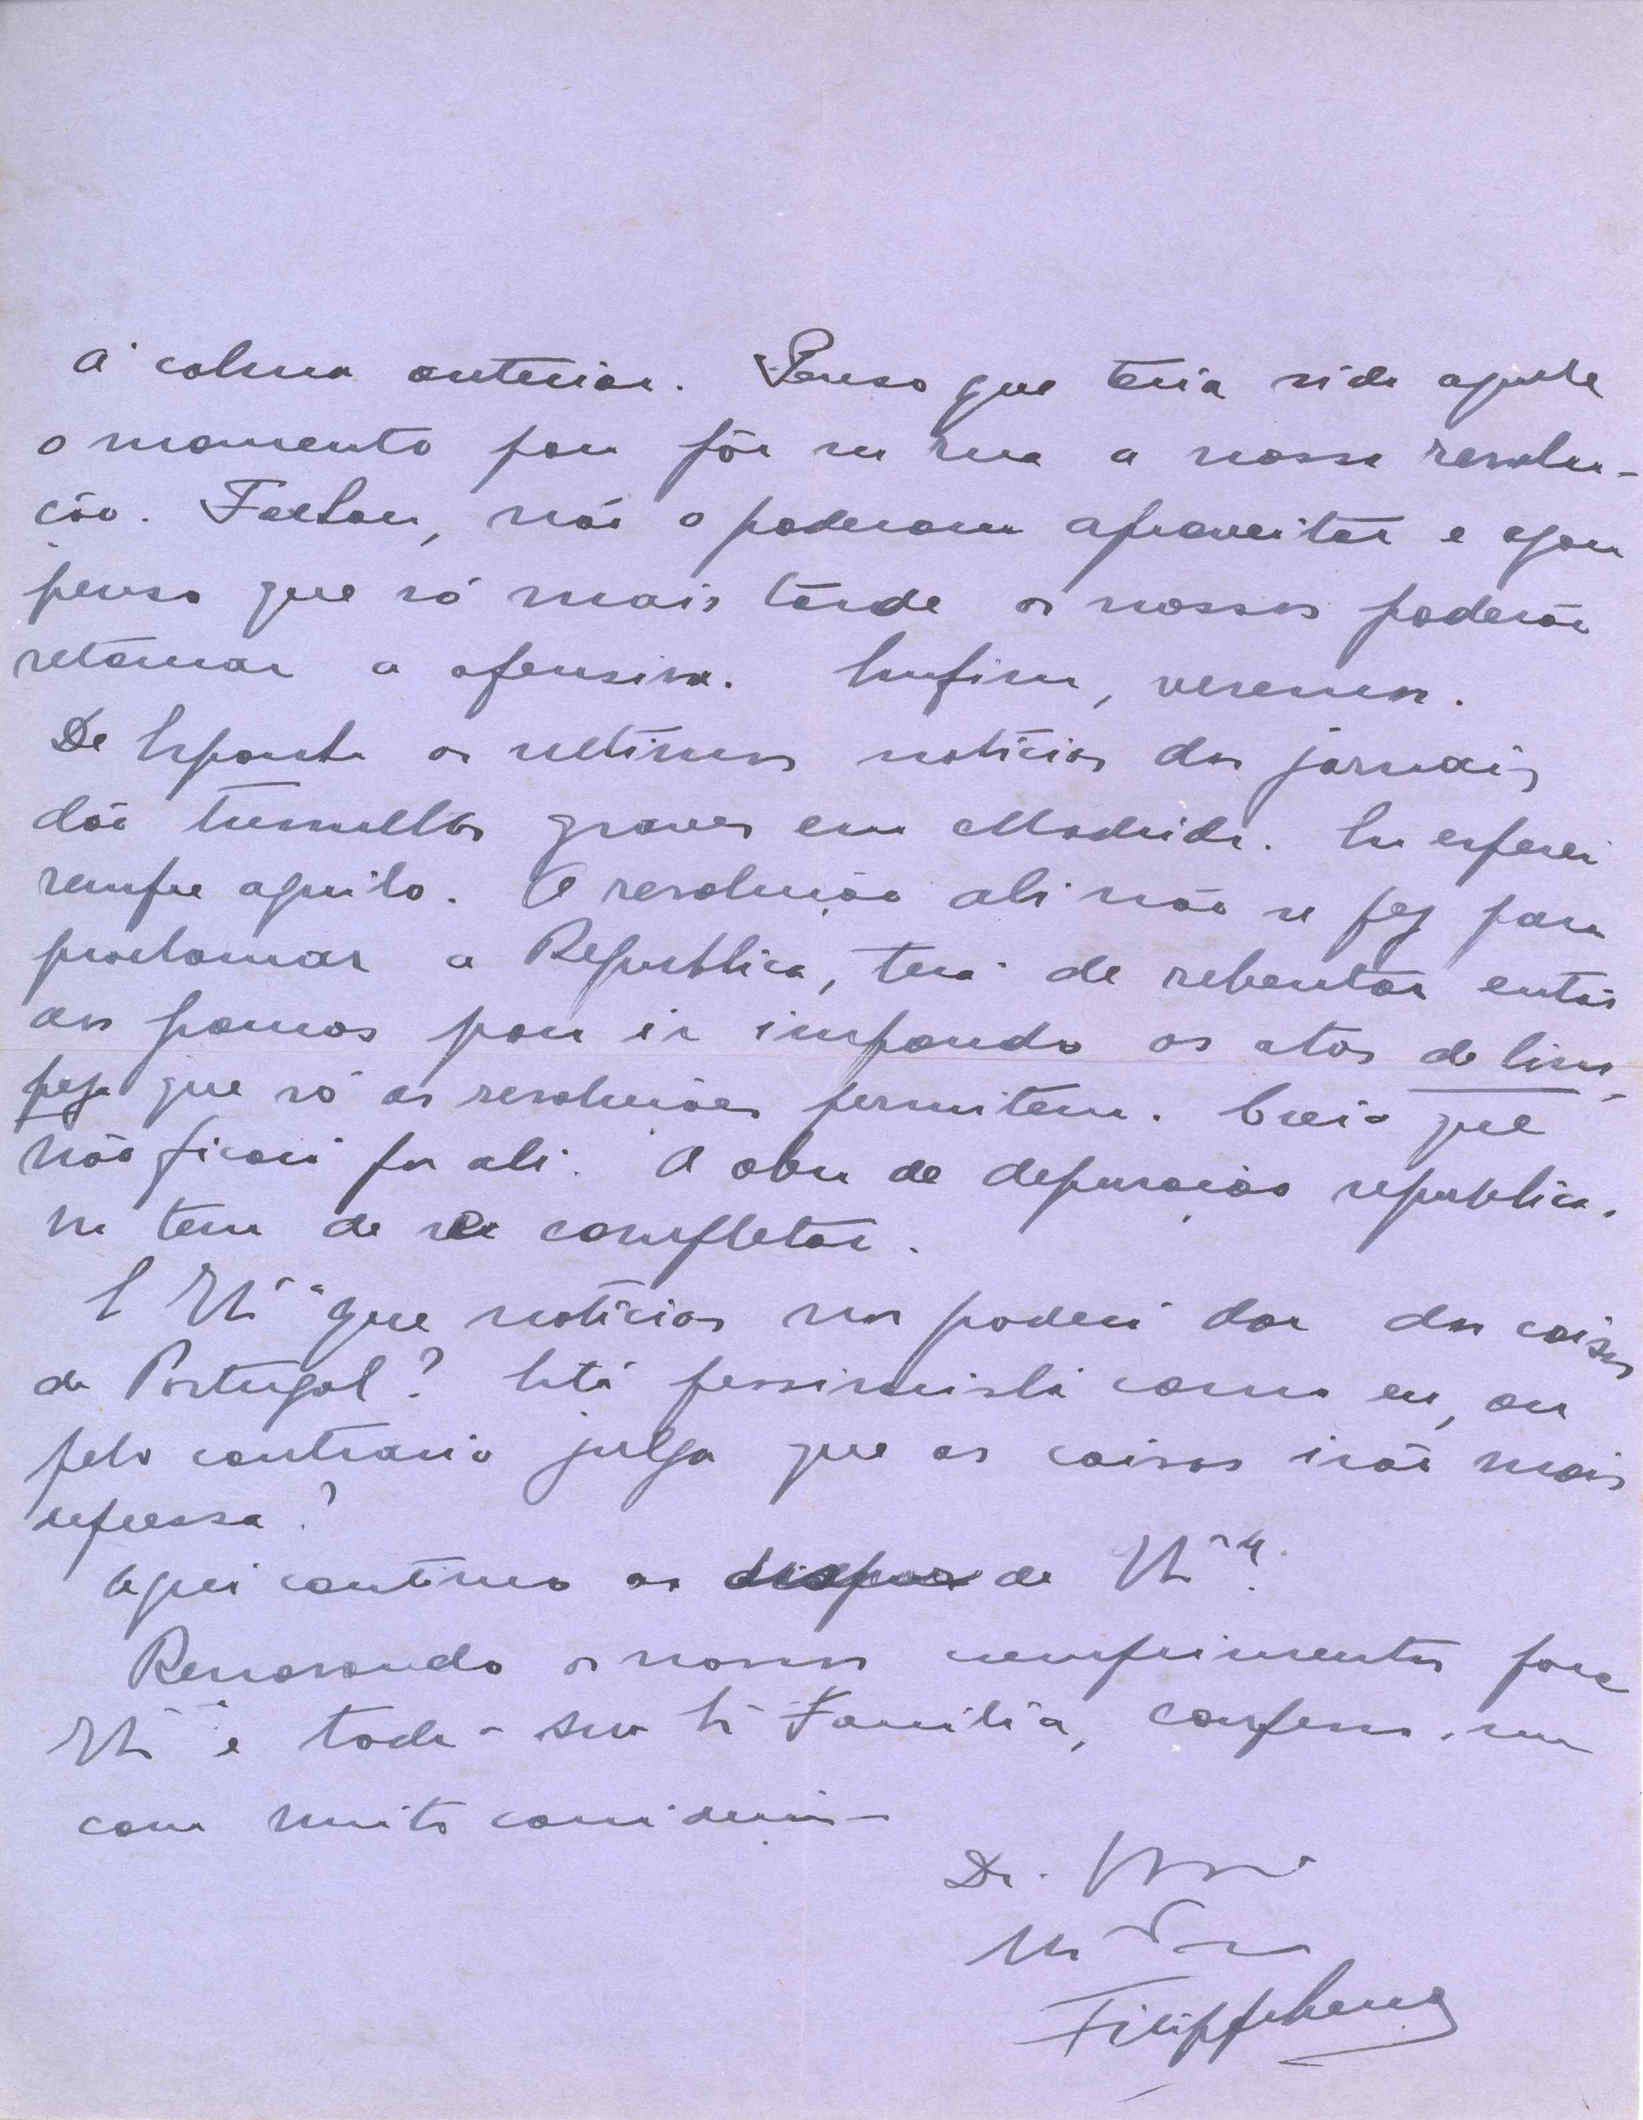 á calma anterior. Penso que teria sido aquele
o momento para pôr na rua a nossa revolu-
ção. Faltou, não o poderam aproveitar e agora
penso que só mais tarde os nossos poderão
retomar a ofensiva. Emfim, veremos.
De Espanha as ultimas noticias dos jornais
dão tumultos graves em Madrid. Eu esperei
sempre aquilo. A revolução ali não se fez para
proclamar a Republica, terá de rebentar então
aos poucos para ir impondo os atos de lim-
peza que só as revoluções permitem. Creio que
não ficará por ali. A obra de depuração republica-
na tem de se completar.
E que noticias nos poderá dar das coisas
de Portugal? Está pessimista como eu, ou
pelo contrario julga que as coisas irão mais
depressa?
Aqui continuo ao dispor de
Renovando os nossos cumprimentos para
e toda a sua Familia, confesso-me
com muita consideração
De